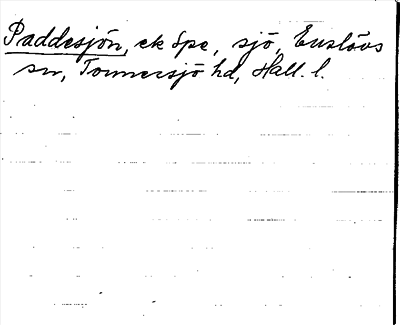 Paddesjön, ek Spe, sjö, Enslövs
sn, Tönnersjö hd, Hall. l.